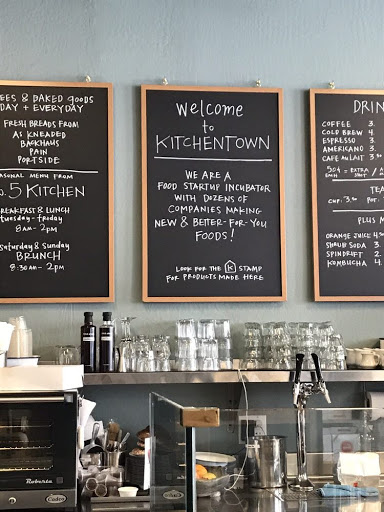 & BAKED GOODS
DAY + EVERYDAY
FRESH BREADS FROM
AS KNEADED
BACKHAUS
PAIN
PORTSIDE
MENU FROM
5 KITCHEN
BREAKFAST & LUNCH
Tuesday-Friday
8AM - 2PM
Saturday & Sunday
BRUNCH
8:30AM - 2PM
Welcome
to
KITCHENTOWN
WE ARE A
FOOD STARTUP INCUBATOR
WITH DOZENS OF
COMPANIES MAKING
NEW & BETTER-FOR-YOU
FOODS!
LOOK FOR THE K STAMP
FOR PRODUCTS MADE HERE
DRIN
COFFEE 3.
COLD BREW 4.
ESPRESSO 3.
AMERICANO 3.
CAFE AU LAIT 3.
50¢ EACH = EXTRA SHOT /
TEA
CUP: 3.50 POT:
PLUS M
ORANGE JUICE 4.50
SHRUB SODA 3.
SPINDRIFT 2.
KOMBUCHA 4.
Roberta